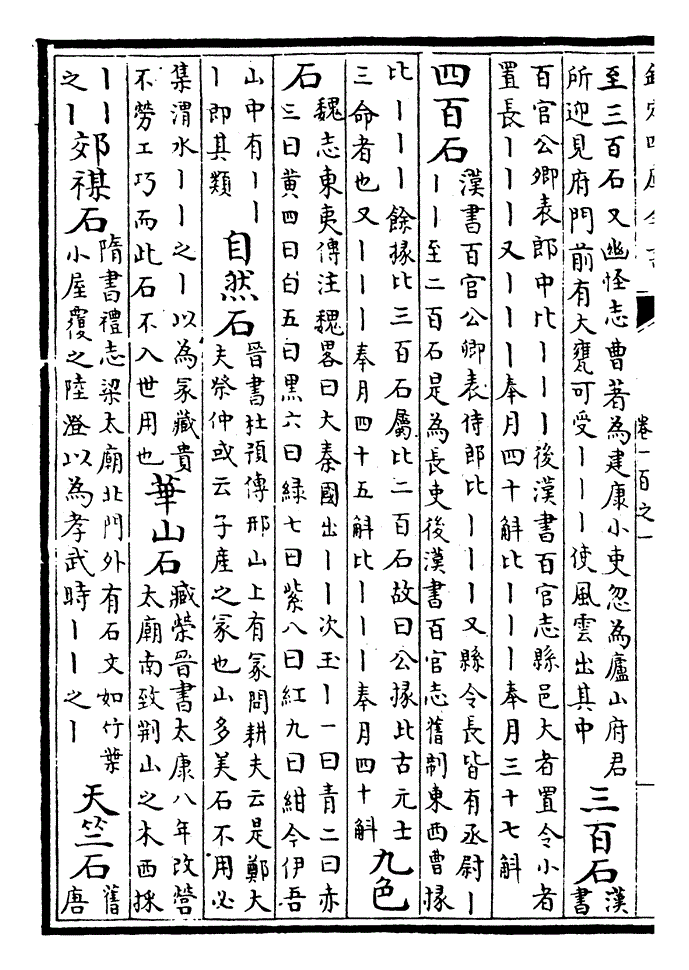 欽定四庫全書
卷一百之一
至三百石又幽怪志曹著為建康小吏忽為廬山府君
所迎見府門前有大甕可受丨丨丨使風雲出其中
三百石
漢
書
百官公卿表郎中比丨丨丨後漢書百官志縣邑大者置令小者
置長丨丨丨又丨丨丨奉月四十斛比丨丨丨奉月三十七斛
四百石
漢書百官公卿表侍郎比丨丨丨又縣令長皆有丞尉丨
丨丨至二百石是為長吏後漢書百官志舊制東西曹掾
比丨丨丨餘掾比三百石屬比二百石故曰公掾比古元士
三命者也又丨丨丨奉月四十五斛比丨丨丨奉月四十斛
九色
石
魏志東夷傳注魏畧曰大秦國出丨丨次玉丨一曰青二曰赤
三曰黄四曰白五曰黑六曰緑七曰紫八曰紅九曰紺今伊吾
山中有丨丨
丨即其類
自然石
晉書杜預傳邢山上有冢問耕夫云是鄭大
夫祭仲或云子産之冢也山多美石不用必
集渭水丨丨之丨以為冢藏貴
不勞工巧而此石不入世用也
華山石
臧榮晉書太康八年改營
太廟南致荆山之木西採
丨丨
之丨
郊禖石
隋書禮志梁太廟北門外有石文如竹葉
小屋覆之陸澄以為孝武時丨丨之丨
天竺石
舊
唐